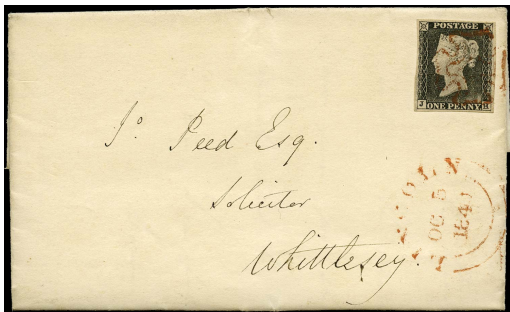 POSTAGE
J H
ONE PENNY
Jo. Peed Esq.
Solicitor
Whittlesey.
LINCOLN
OC 5
1840